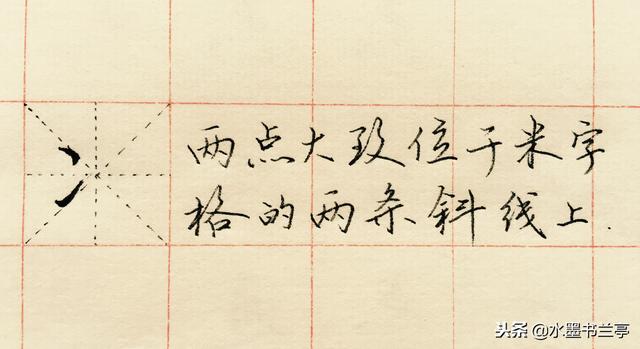 冫
两点大致位于米字
格的两条斜线上.
头条 @水墨书兰亭